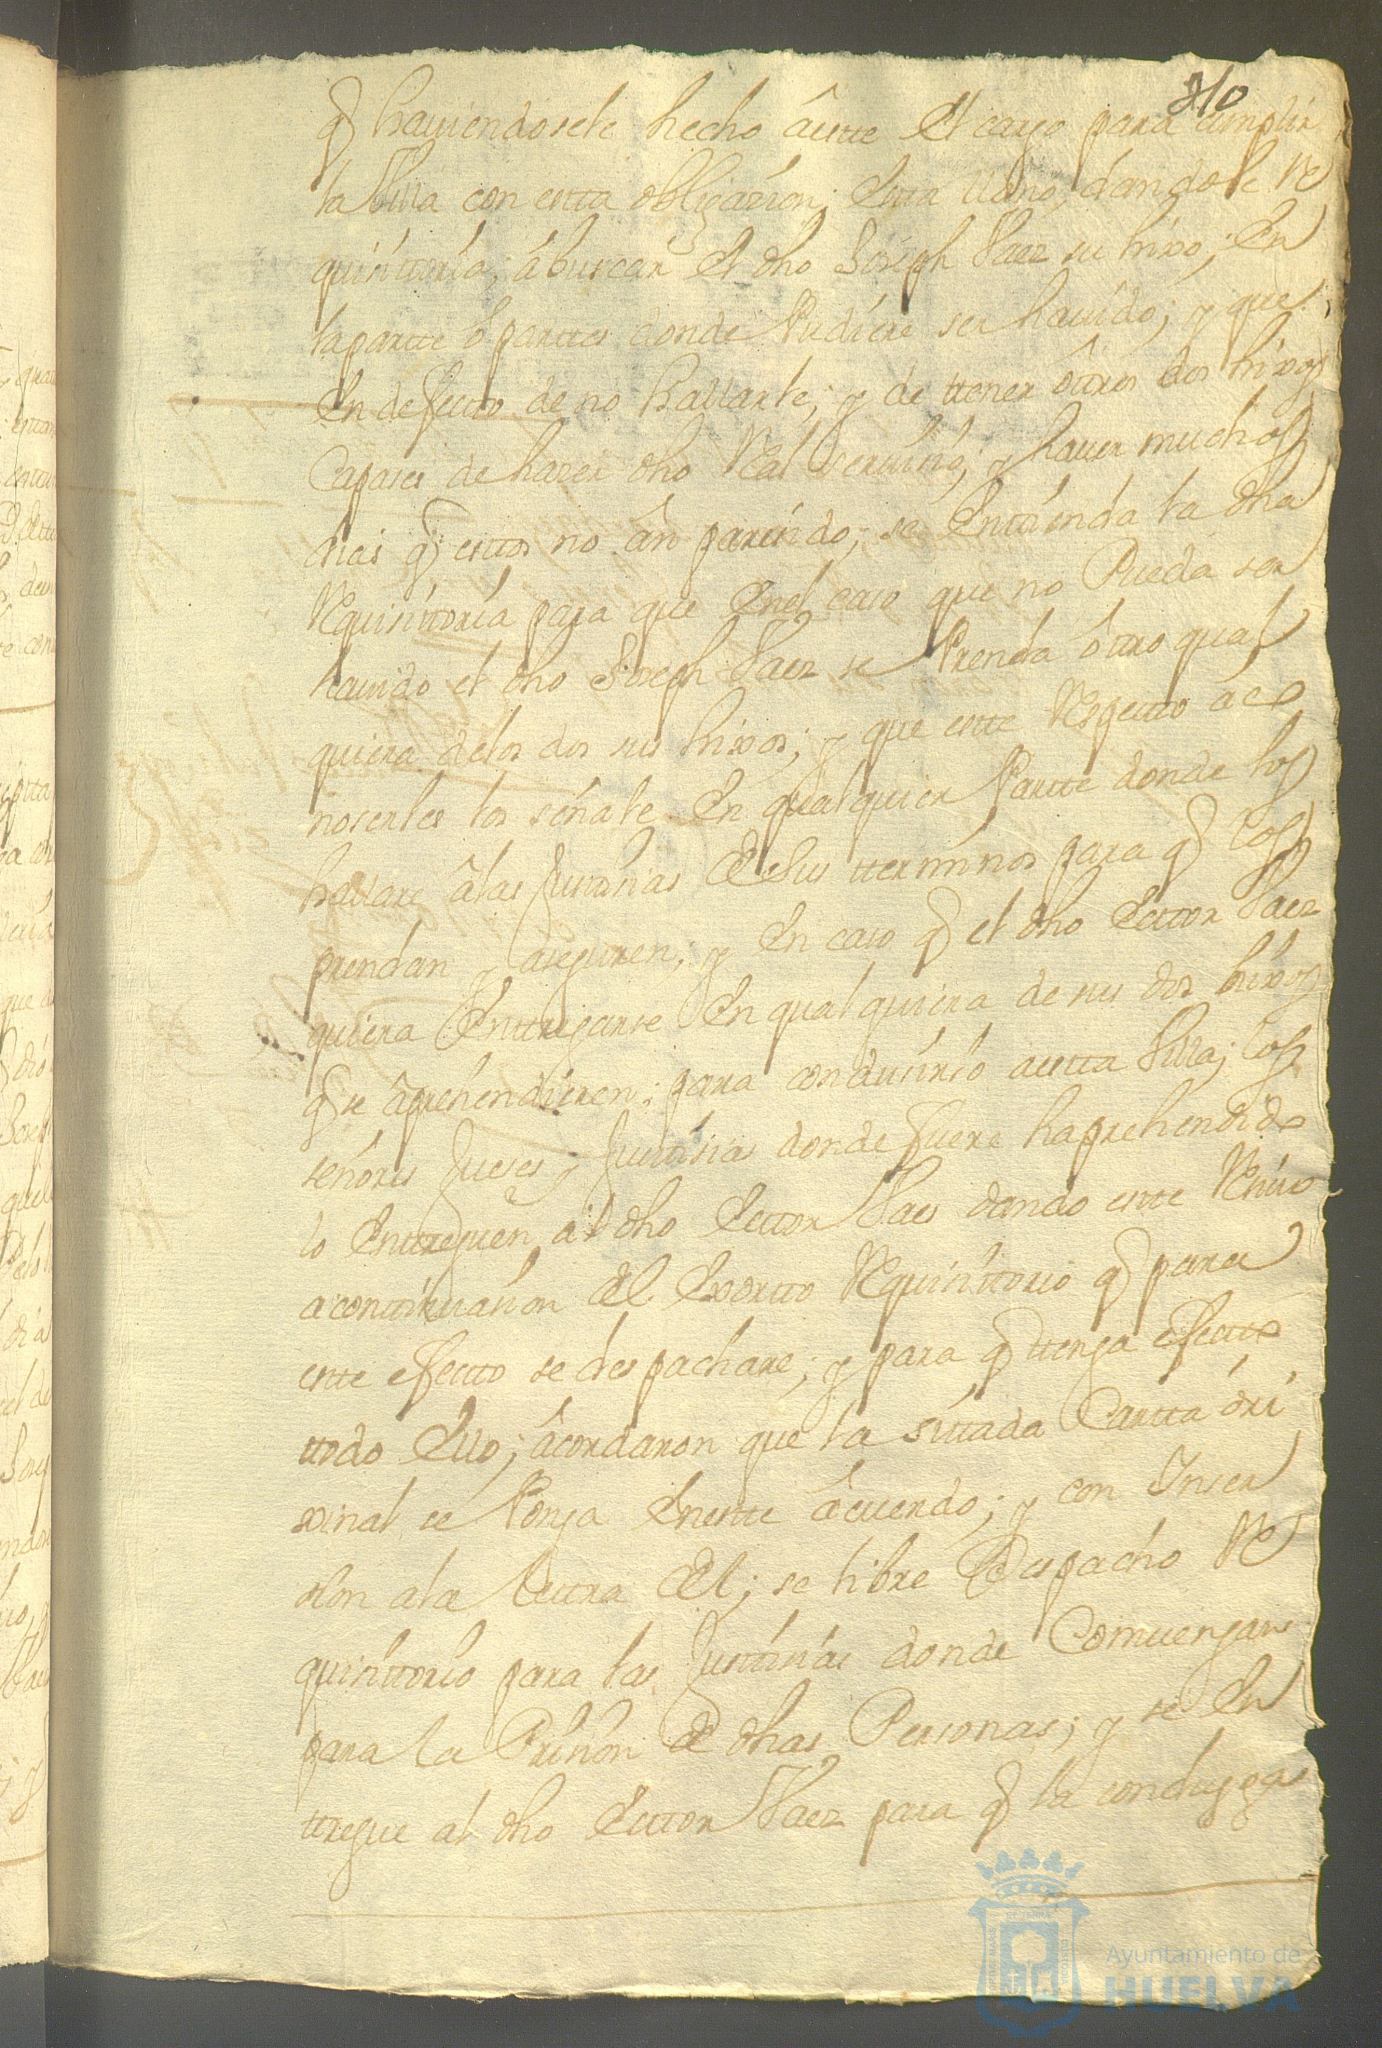 210
q haviendosele hecho áeste el cargo para cumplir
la Villa con esta obligazion; dandole Re
quisittoria; á buscar el dho Joseph Saez su hixo; En
la partte ó parttes donde Pudiere ser havido; y que
En defectto de no hallarle; y de ttener ôttros dos hixos
Capases de hazer dho Real servizio; y haver muchos
dias q esttos no ân parezido; se Enttienda la dha
Requisittoria para que Enel caso que no Pueda ser
havido el dho Joseph Saez se Prenda ôttro qual
quiera delos dos sus hixos; y que estte Respectto á co
noserles los señale En qualquier Partte donde los
hallare â las Justtisias de sus tterminos para q los
prendan y aseguren; y En caso q el dho Ecttor Saez
quiera Enttregarse En qualquiera de sus dos hixos
q se âprehendieren; para condusirlo a estta Villa; los
señores Jueses y Justtisias donde fuere haprehendido
lo Enttreguen al dho Ecttor Saes dando estte Resivo
a conttinuasion del Exortto Requisittorio q para
estte efectto se despachare; y para q ttenga efectto
ttodo Ello; âcordaron que la sittada Cartta óri
xinal se Ponga Enestte âcuerdo; y con Inser
sion ala Lettra del; se libre Despacho Re
quisittorio para las Justtisias donde Comvengan
para la Prision de dhas Personas; y se En
ttregue al dho Ecttor Saez para q la condusga
Ayuntamiento de
HUELVA